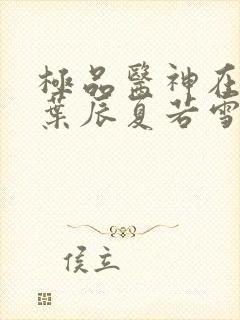 極品醫神在
葉辰夏若雪
侯立